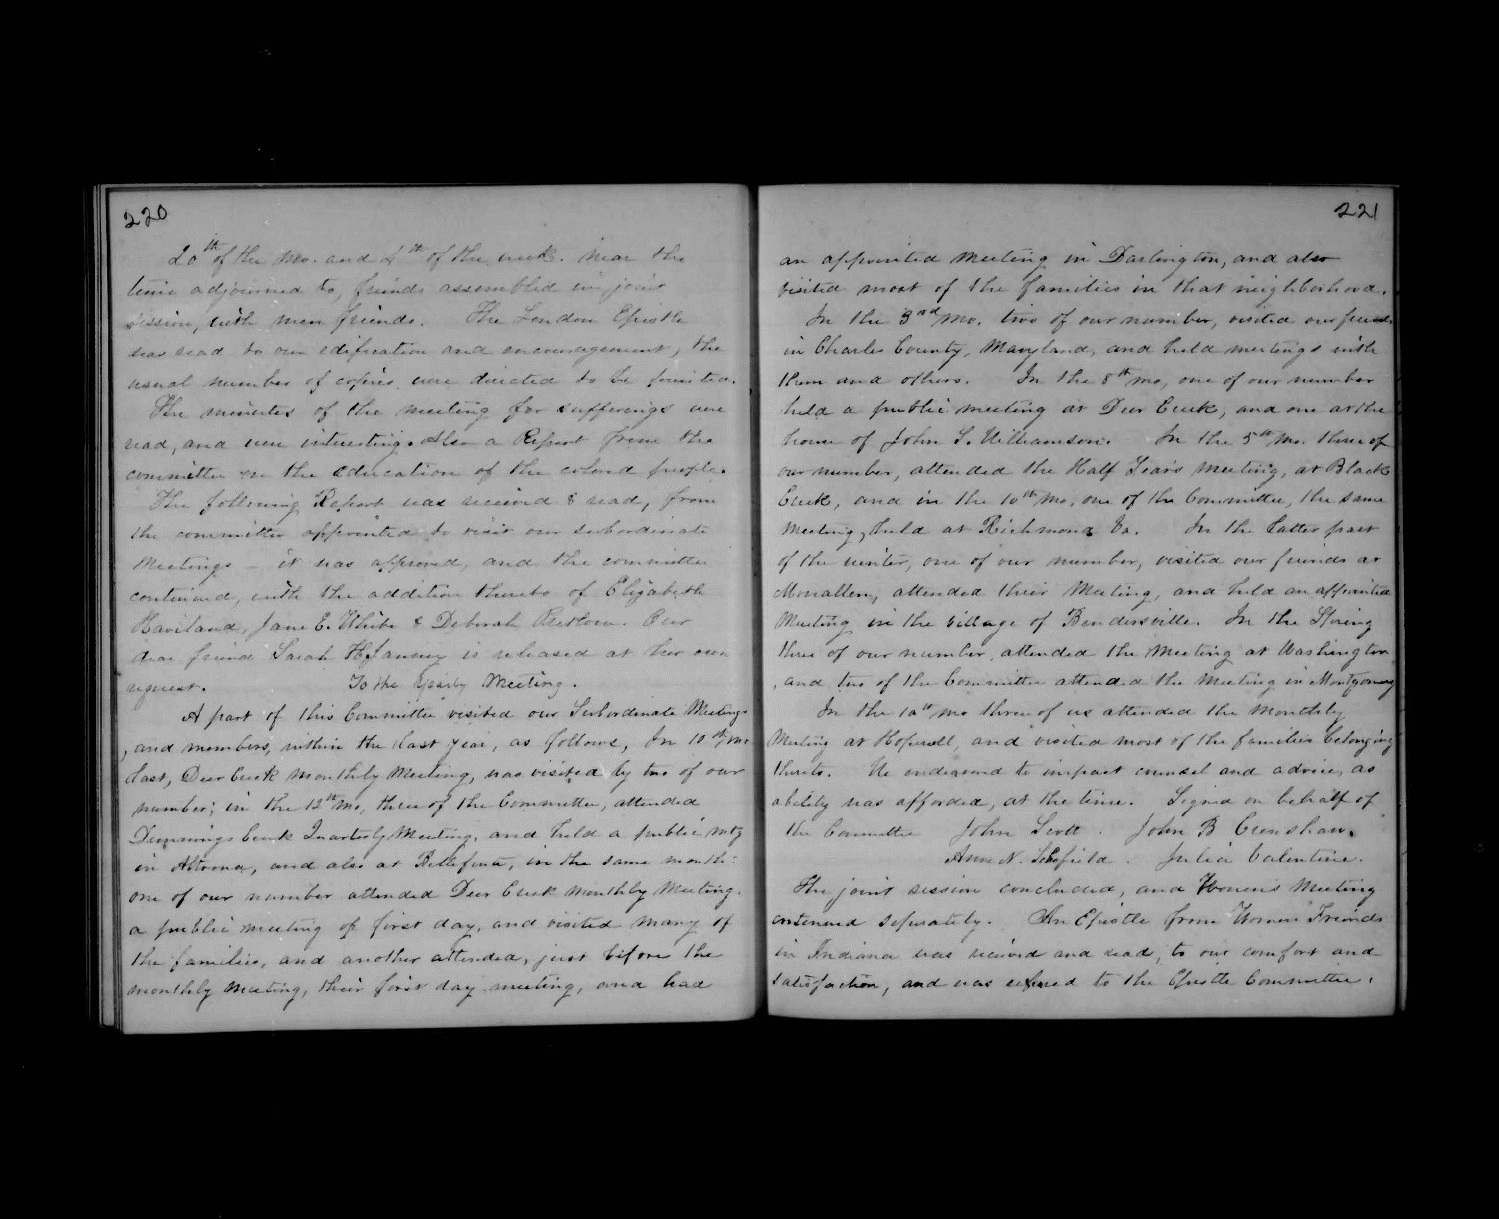 220
20th of the Mo. and 4th of the week. Near the
time adjourned to, friends assembled in joint
session, with men friends. The London Epistle
was read to our edification and encouragement, the
usual number of copies were directed to be printed.
The minutes of the meeting for sufferings were
read, and were interesting. Also a Report from the
committee on the education of the colored people.
The following Report was received & read, from
the committee appointed to visit our subordinate
Meetings – it was approved, and the committee
continued, with the addition thereto of Elizabeth
Haviland, Jane E. White & Deborah Our
dear friend Sarah H. Janney is released at her own
request. To the Yearly Meeting.
A part of this Committee visited our Subordinate Meetings
, and members, within the last year, as follows, In 10th Mo
last, Deer Creek Monthly Meeting, was visited by two of our
number; in the 12th Mo, three of the Committee, attended
Dunnings Creek Quarterly Meeting, and held a public mtg
in Altoona, and also at Bellefonte, in the same month:
one of our number attended Deer Creek Monthly Meeting.
a public meeting of first day, and visited many of
the families, and another attended, just before the
monthly meeting, their first day meeting, and had
221
an appointed meeting in Darlington, and also
visited most of the families in that neighborhood.
In the 3rd Mo. two of our number, visited our friends
in Charles County, Maryland, and held meetings with
them and others. In the 8th mo, one of our number
held a public meeting at Deer Creek, and one at the
house of John S. Williamson. In the 5th Mo. three of
our number, attended the Half Years Meeting, at Black
Creek, and in the 10th Mo, one of the Committee, the same
Meeting, held at Richmond Va. In the latter part
of the winter, one of our number, visited our friends at
Menallen, attended their Meeting, and held an appointed
Meeting in the village of Bendersville. In the Spring
three of our number, attended the Meeting at Washington
, and two of the Committee attended the Meeting in Montgomery
In the 10th mo three of us attended the Monthly
Meeting at Hopewell, and visited most of the families belonging
thereto. We endeavored to impart counsel and advice, as
ability was afforded, at the time. Signed on behalf of
the Committee John Scott. John B Crenshaw.
Ann N. Scofield. Julia Valentine.
The joint session concluded, and Women's Meeting
continued seperately. An Epistle from Women Friends
in Indiana was received and read, to our comfort and
satisfaction, and was refered to the Epistle Committee.